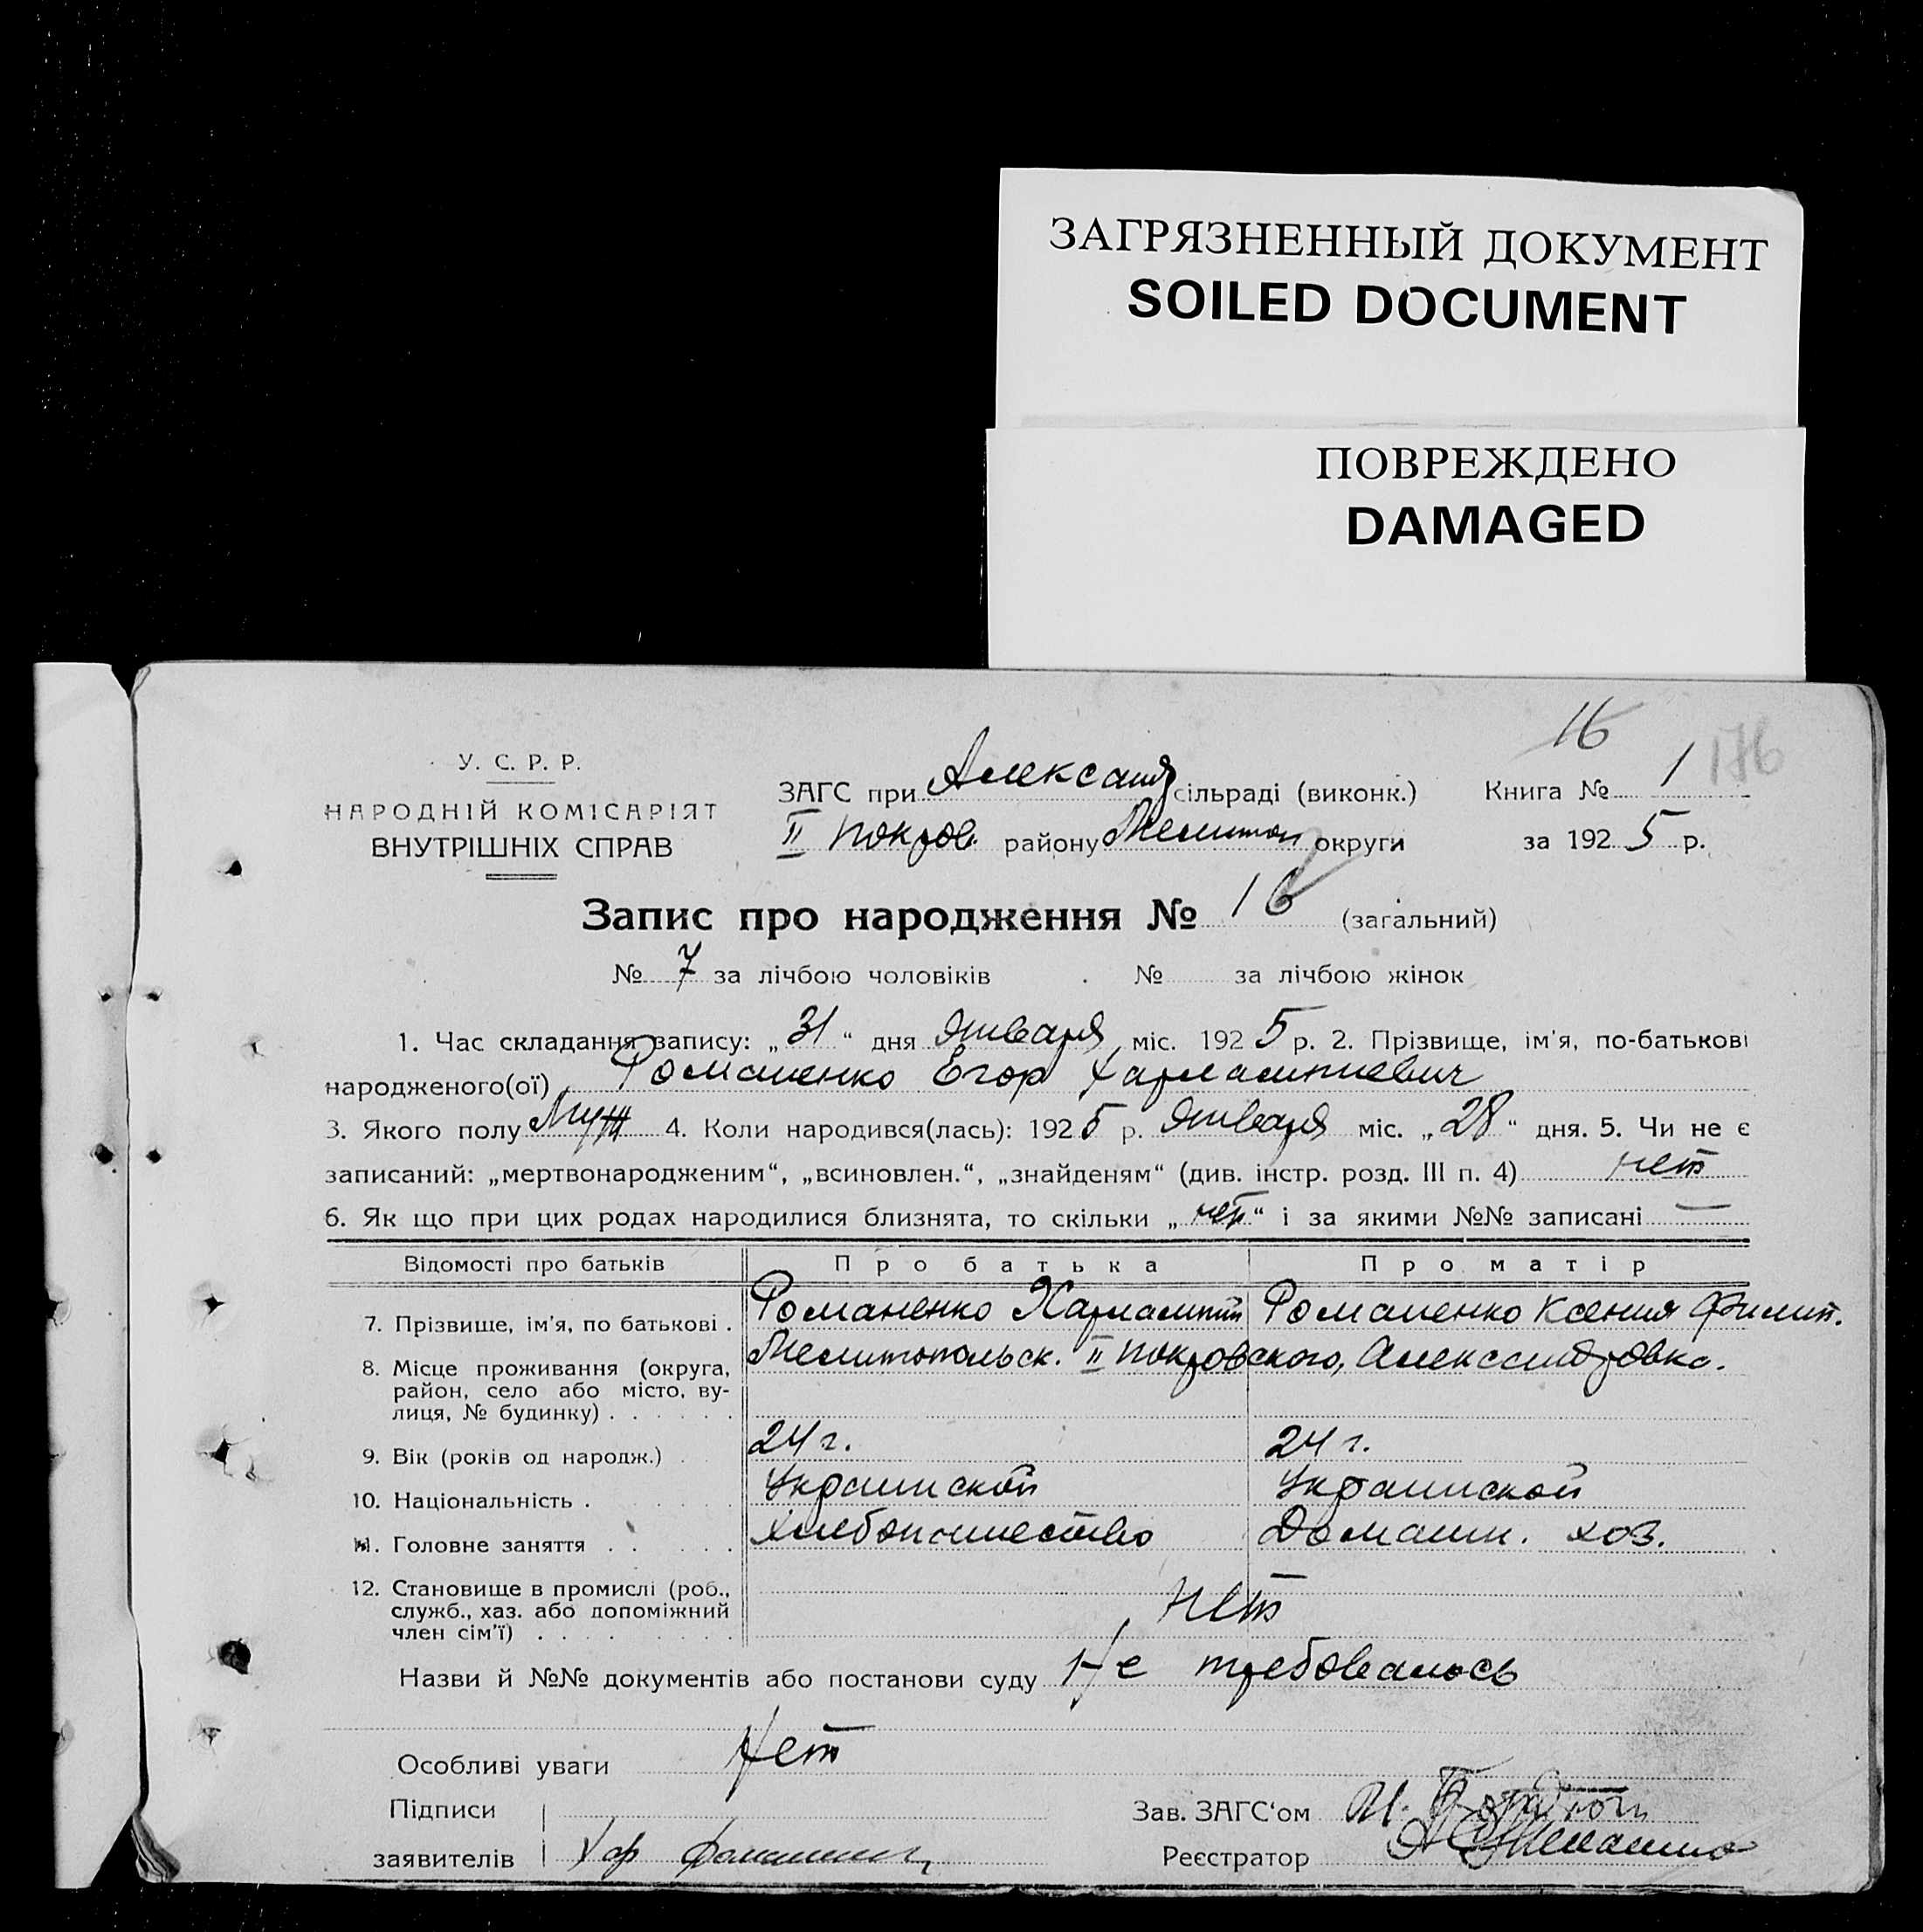 ЗАГРЯЗНЕННЫЙ ДОКУМЕНТ
SOILED DOCUMENT
ПОВРЕЖДЕНО
DAMAGED
16
176
У. С. Р. Р.
НАРОДНІЙ КОМІСАРІЯТ
ВНУТРІШНІХ СПРАВ
ЗАГС при Александ сільраді (виконк.) Книга № 1
II Покров. району Мелитоп округи за 1925 р.
Запис про народження № 16 (загальний)
№ 7 за лічбою чоловіків № за лічбою жінок
1. Час складання запису: „31“ дня Января міс. 1925 р. 2. Прізвище, ім'я, по-батькові
народженого(ої) Романенко Егор Харлампиевич
3. Якого полу Муж 4. Коли народився(лась): 1925 р. Января міс. „28“ дня. 5. Чи не є
записаний: „мертвонародженим“, „всиновлен.“, „знайденям“ (див. інстр. розд. III п. 4) нет
6. Як що при цих родах народилися близнята, то скільки „нет“ і за якими №№ записані —
Відомості про батьків Про батька Про матір
7. Прізвище, ім'я, по батькові . Романенко Харлампий Романенко Ксения Филип.
8. Місце проживання (округа, Мелитопольск. II Покровского, Александровка.
район, село або місто, ву-
лиця, № будинку) . . . . . .
9. Вік (років од народж.) . 24 г. 24 г.
10. Національність . . . . . Украинской Украинской
11. Головне заняття . . . . . Хлебопашество Домашн. хоз.
12. Становище в промислі (роб., Нет
служб., хаз. або допоміжний
член сім'ї) . . . . . . . .
Назви й №№ документів або постанови суду Не требовалось
Особливі уваги Нет
Підписи Зав. ЗАГС'ом И.
заявителів Хар Романенко Реєстратор